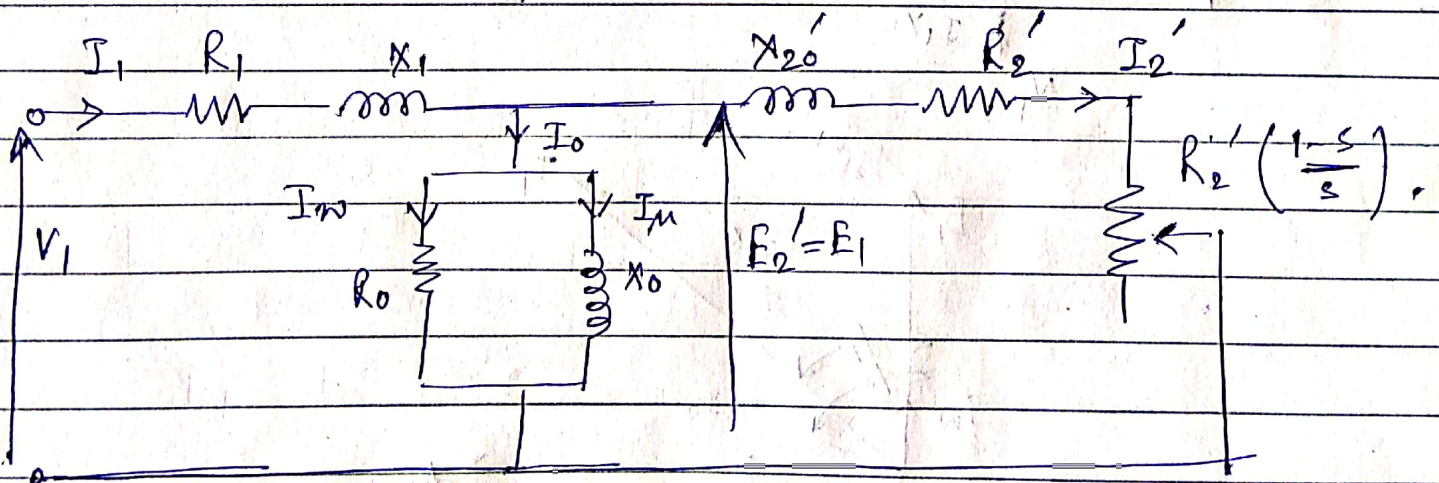 I₁ R₁ X₁ X₂₀' R₂' I₂'
I₀
R₂' (1-s/s).
I_w I_μ
V₁ E₂'=E₁
R₀ X₀